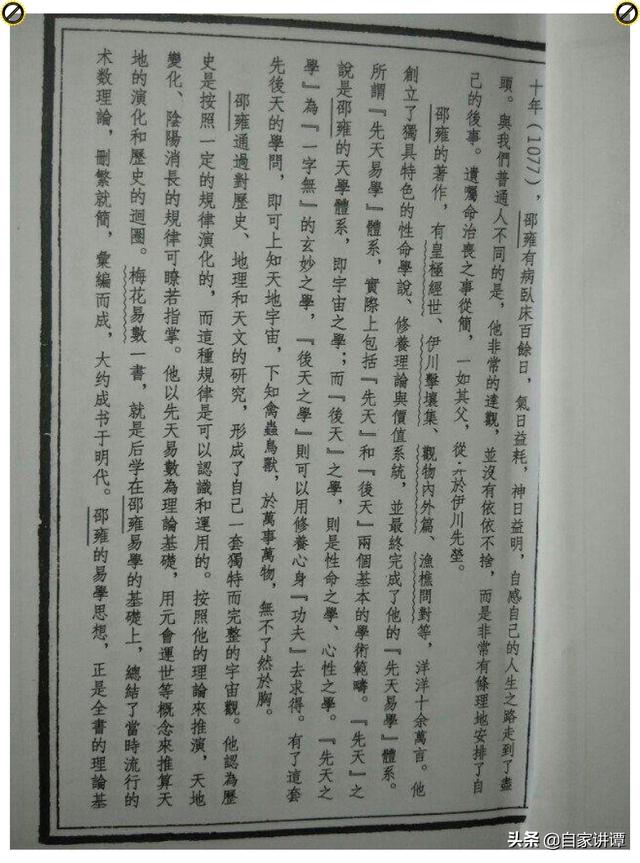 十年(1077)，邵雍有病臥床百餘日，氣日益耗，神日益明，自感自己的人生之路走到了盡
頭。與我們普通人不同的是，他非常的達觀，並沒有依依不捨，而是非常有條理地安排了自
己的後事。遺囑命治喪之事從簡，一如其父，從葬於伊川先塋。
邵雍的著作，有皇極經世、伊川擊壤集、觀物內外篇、漁樵問對等，洋洋十余萬言。他
創立了獨具特色的性命學說、修養理論與價值系統，並最終完成了他的『先天易學』體系。
所謂『先天易學』體系，實際上包括『先天』和『後天』兩個基本的學術範疇。『先天』之
說是邵雍的天學體系，即宇宙之學；而『後天』之學，則是性命之學、心性之學。『先天之
學』為『一字無』的玄妙之學，『後天之學』則可以用修養心身『功夫』去求得。有了這套
先後天的學問，即可上知天地宇宙，下知禽蟲鳥獸，於萬事萬物，無不了然於胸。
邵雍通過對歷史、地理和天文的研究，形成了自己一套獨特而完整的宇宙觀。他認為歷
史是按照一定的規律演化的，而這種規律是可以認識和運用的。按照他的理論來推演，天地
變化、陰陽消長的規律可瞭若指掌。他以先天易數為理論基礎，用元會運世等概念來推算天
地的演化和歷史的迴圈。梅花易數一書，就是后学在邵雍易學的基礎上，總結了當時流行的
术数理論，刪繁就簡，彙編而成，大约成书于明代。邵雍的易學思想，正是全書的理論基
头条@自家讲谭